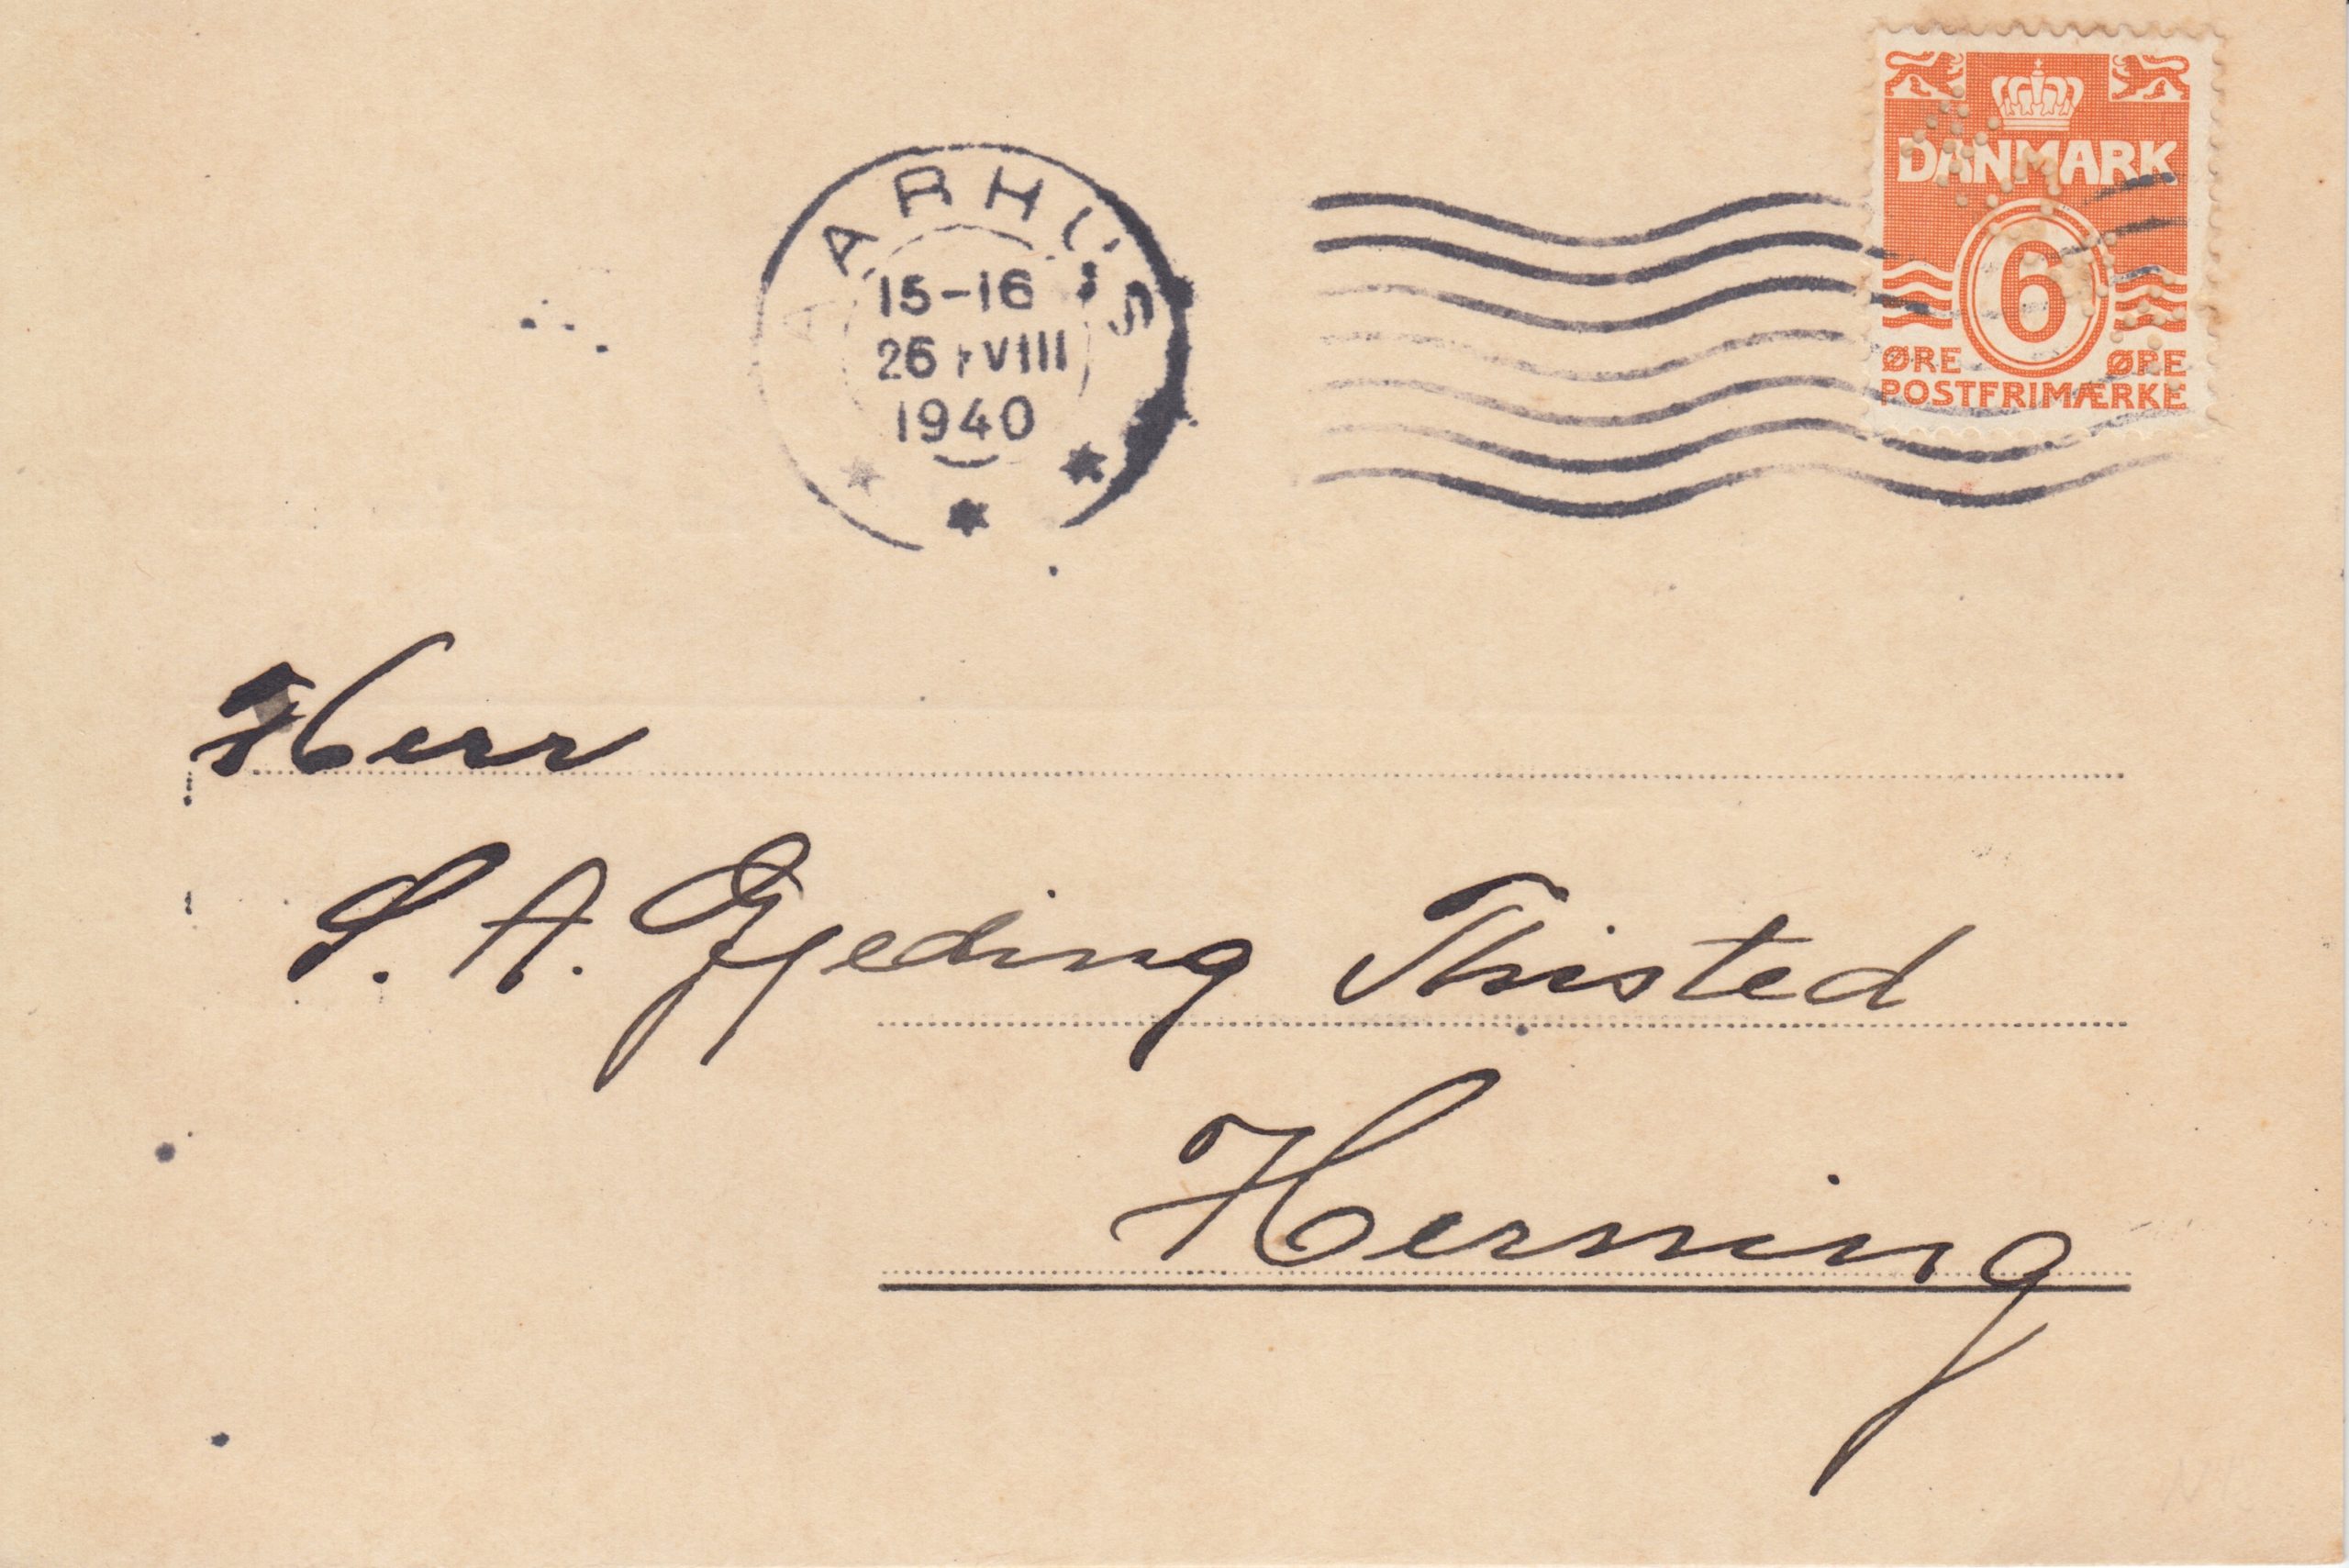 AARHUS
15-16
26 VIII
1940
DANMARK
6
ØRE ØRE
POSTFRIMÆRKE
Herr
S. A. Gjeding Thisted
Herning